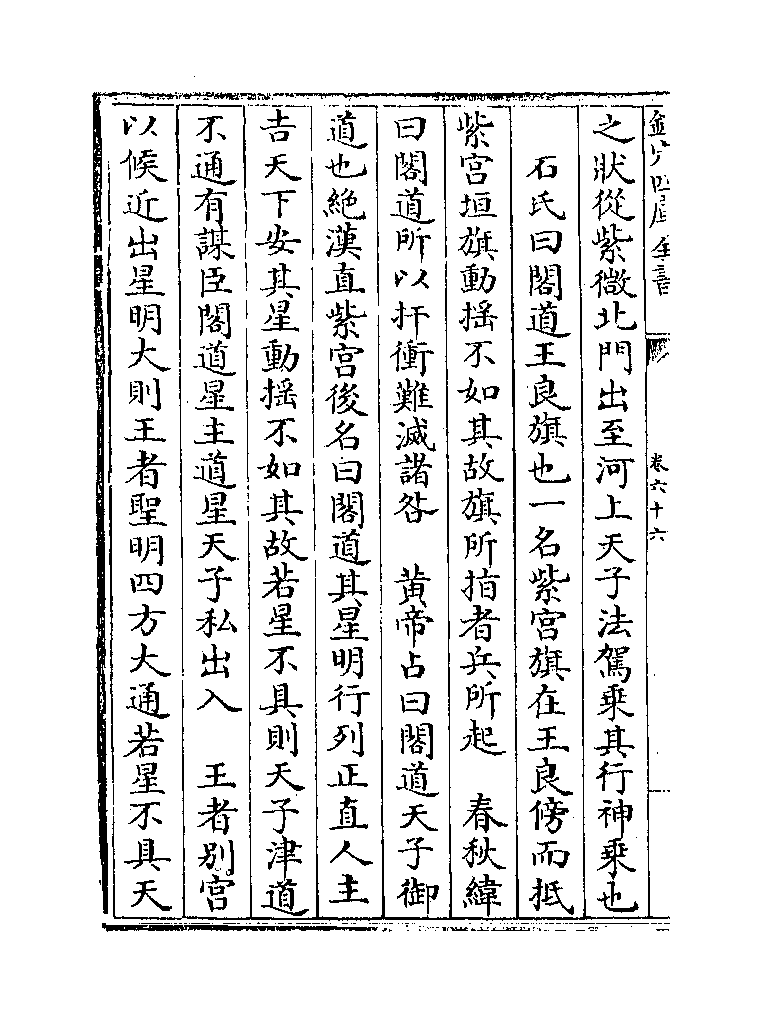 欽定四庫全書
卷六十六
之狀從紫微北門出至河上天子法駕乘其行神乘也
石氏曰閣道王良旗也一名紫宫旗在王良傍而抵
紫宫垣旗動揺不如其故旗所指者兵所起 春秋緯
曰閣道所以扞衝難滅諸咎 黄帝占曰閣道天子御
道也絶漢直紫宫後名曰閣道其星明行列正直人主
吉天下安其星動揺不如其故若星不具則天子津道
不通有謀臣閣道星主道星天子私出入 王者别宫
以候近出星明大則王者聖明四方大通若星不具天